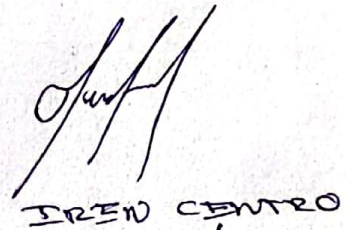 IREN CENTRO